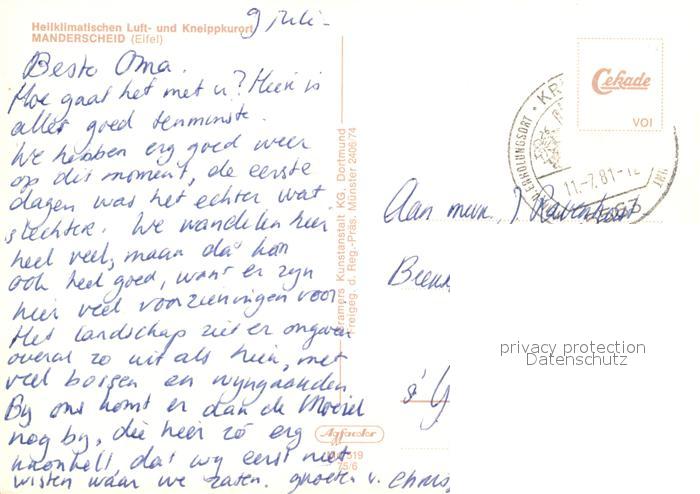 Heilklimatischen Luft- und Kneippkurort
MANDERSCHEID (Eifel)
9 juli-
Beste Oma.
Hoe gaat het met u? Hier is
alles goed tenminste.
We hebben erg goed weer
op dit moment, de eerste
dagen was het echter wat
slechter. We wandelen hier
heel veel, maar dat kan
ook heel goed, want er zyn
hier veel voorzieningen voor
Het landschap ziet er ongeveer
overal zo uit als hier, met
veel bossen en wyngaarden
By ons komt er dan de Moezel
nog by, die hier zó erg
kronkelt, dat wy eerst niet
wisten waar we zaten. groeten v.
Kramers Kunstanstalt KG, Dortmund
Freigeg. d. Reg.-Präs. Münster 2406/74
Agfacolor
519
75/6
Cekade
VOI
ERHOLUNGSORT · KR
11.-7.81-12
Aan mevr.
privacy protection
Datenschutz